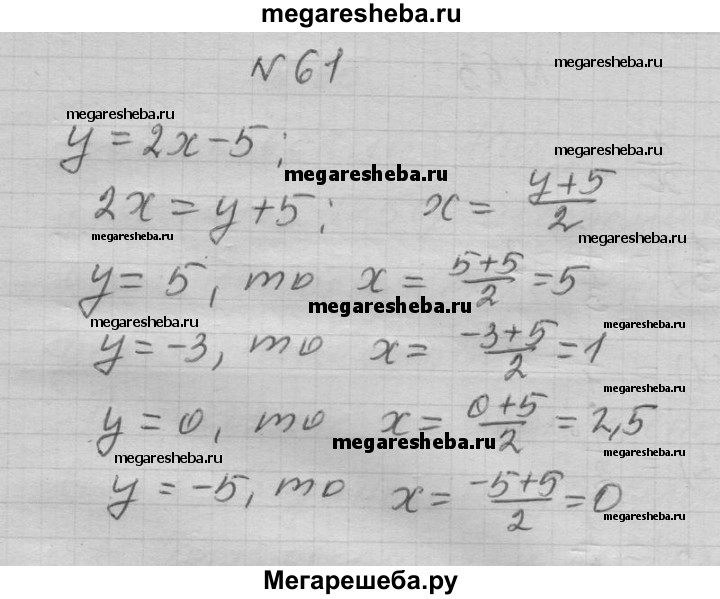 megaresheba.ru
№ 61
megaresheba.ru
megaresheba.ru
y = 2x - 5;
megaresheba.ru
megaresheba.ru
2x = y + 5; x = (y+5)/2
megaresheba.ru
megaresheba.ru
y = 5, то x = (5+5)/2 = 5
megaresheba.ru
megaresheba.ru
megaresheba.ru
y = -3, то x = (-3+5)/2 = 1
megaresheba.ru
y = 0, то x = (0+5)/2 = 2,5
megaresheba.ru
megaresheba.ru
megaresheba.ru
y = -5, то x = (-5+5)/2 = 0
megaresheba.ru
Мегарешеба.ру